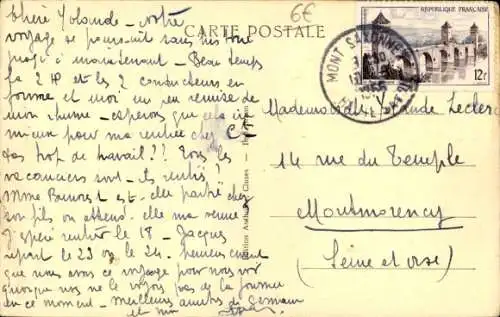 6€
CARTE POSTALE
RÉPUBLIQUE FRANÇAISE
12F
MONT SAXONNEX
1955
Chère Yolande - Notre
voyage se poursuit sans
jusqu'à maintenant - Beau temps
la 2 HP et les 2 conducteurs en
forme et moi un peu remise de
mon rhume - esperons que cela ira
mieux pour ma rentrée chez C
Pas trop de travail ?? Tous les
vacanciers sont-ils rentrés ?
Mme est-elle partie chez
son fils ou attend-elle ma venue
J'espère rentrer le 18 - Jacques
repart le 23 ou le 24. heureusement
que nous avons ce voyage pour nous voir
puisque nous ne le voyons pas de la journée
en ce moment - Meilleures amitiés de Germain
et moi
Mademoiselle Yolande Leclerc
14 rue du Temple
Montmorency
(Seine et Oise)